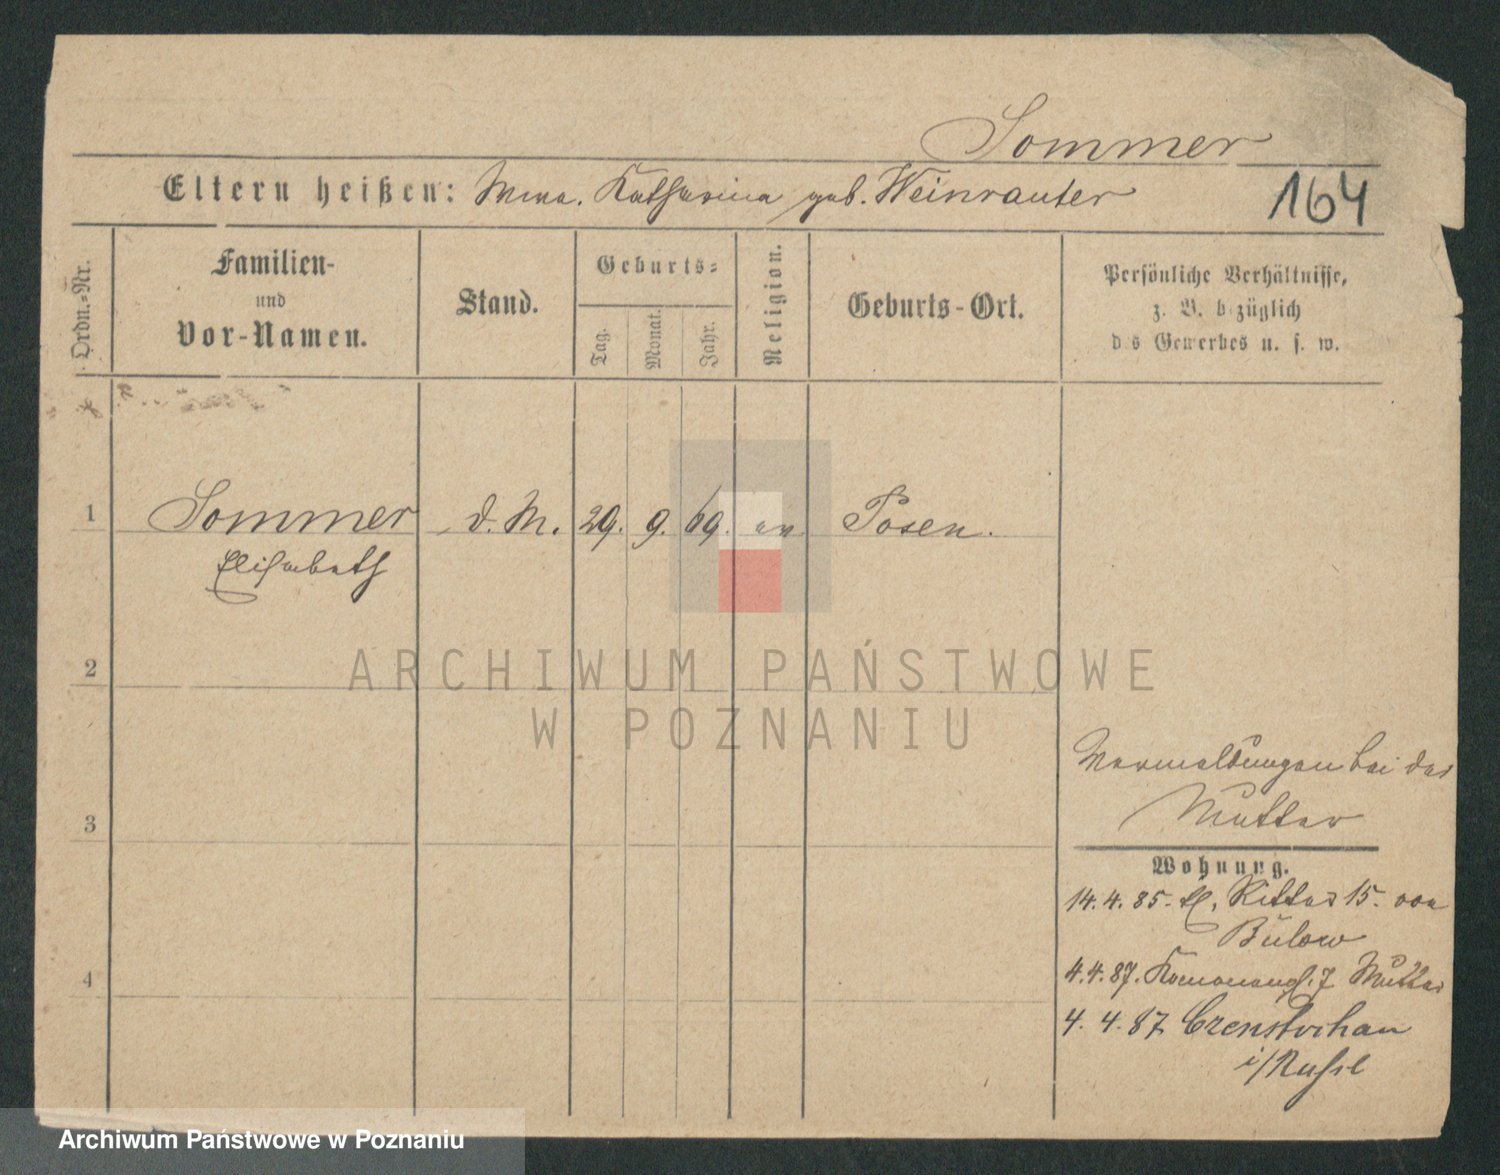 Sommer
Eltern heißen: Wwe. Katharina geb. Weinrauter
164
Ordn.-Nr.
Familien-
und
Vor-Namen.
Stand.
Geburts-
Tag.
Monat.
Jahr.
Religion.
Geburts-Ort.
Persönliche Verhältnisse,
z. B. bezüglich
des Gewerbes u. s. w.
1 Sommer d. M. 29. 9. 69. ev Posen.
Elisabeth
2
ARCHIWUM PAŃSTWOWE
W POZNANIU
3
4
bei der
Mutter
Wohnung.
14.4.85. Kl. Ritter 15. von
Bülow
4.4.87. 7 Mutter
4. 4. 87 Czenstochau
i/Rußl
Archiwum Państwowe w Poznaniu